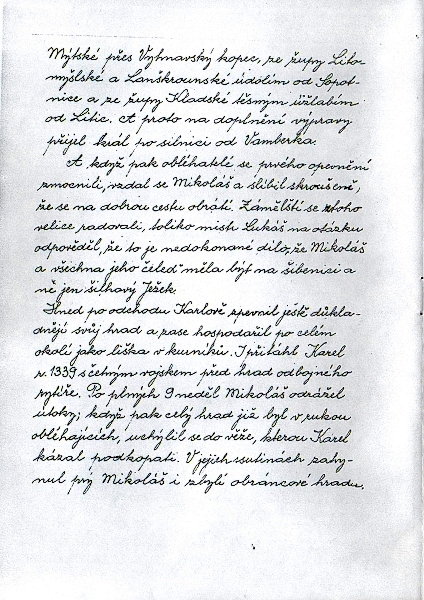 Mýtské přes Vyhnavský kopec, ze župy Lito-
myšlské a Lanškrounské údolím od Sopot-
nice a ze župy Kladské těsným úžlabím
od Litic. A proto na doplnění výpravy
přijel král po silnici od Vamberka.
A když pak obléhatelé se prvého opevnění
zmocnili, vzdal se Mikoláš a slíbil skroušeně,
že se na dobrou cestu obrátí. Zámělští se z toho
velice radovali, toliko mistr Lukáš na otázku
odpověděl, že to je nedokonané dílo, že Mikoláš
a všechna jeho čeleď měla být na šibenici a
ně jen šilhavý Ježek.
Ihned po odchodu Karlově zpevnil ještě důkla-
dněji svůj hrad a zase hospodařil po celém
okolí jako liška v kurníku. I přitáhl Karel
r. 1339 s četným vojskem před hrad odbojného
rytíře. Po plných 9 neděl Mikoláš odrážel
útoky; když pak celý hrad již byl v rukou
obléhajících, uchýlil se do věže, kterou Karel
kázal podkopati. V jejich ssutinách zahy-
nul prý Mikoláš i zbylí obráncové hradu.